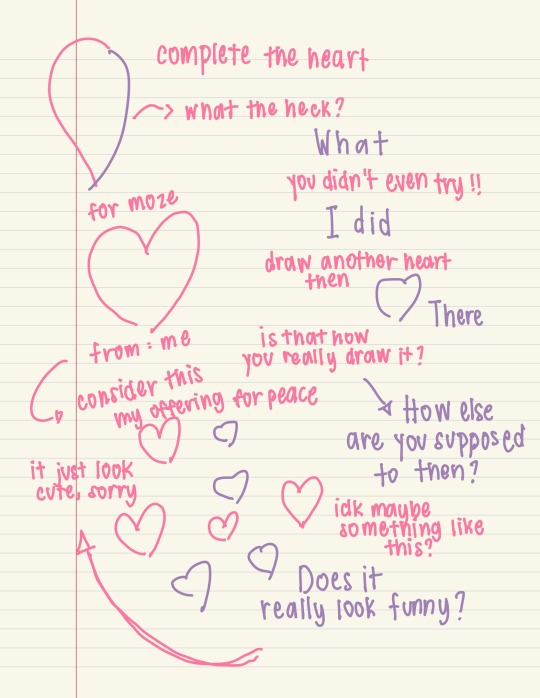 complete the heart
what the heck?
What
you didn't even try !!
for moze
I did
draw another heart
then
There
from : me
is that how
you really draw it?
consider this
my offering for peace
How else
are you supposed
to then?
it just look
cute, sorry
idk maybe
something like
this?
Does it
really look funny?